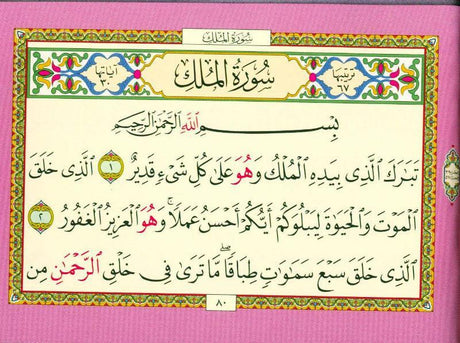 سُورَةُ المُلْكِ
آيَاتُهَا ٣٠ سُورَةُ الْمُلْكِ تَرْتِيبُهَا ٦٧
بِسْمِ اللَّهِ الرَّحْمَٰنِ الرَّحِيمِ
تَبَارَكَ الَّذِي بِيَدِهِ الْمُلْكُ وَهُوَ عَلَىٰ كُلِّ شَيْءٍ قَدِيرٌ ١ الَّذِي خَلَقَ
الْمَوْتَ وَالْحَيَوٰةَ لِيَبْلُوَكُمْ أَيُّكُمْ أَحْسَنُ عَمَلًا ۚ وَهُوَ الْعَزِيزُ الْغَفُورُ ٢
الَّذِي خَلَقَ سَبْعَ سَمَٰوَٰتٍ طِبَاقًا ۖ مَّا تَرَىٰ فِي خَلْقِ الرَّحْمَٰنِ مِن
٨٠